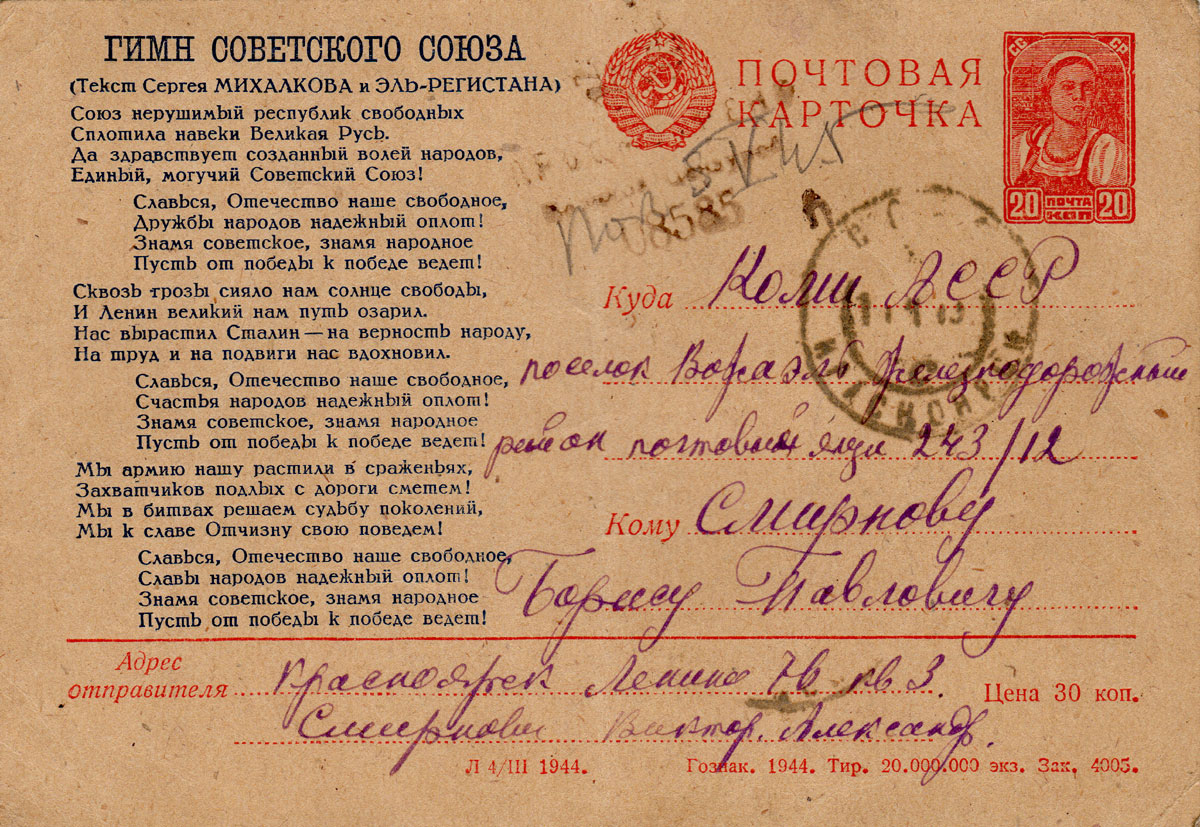 ГИМН СОВЕТСКОГО СОЮЗА
(Текст Сергея МИХАЛКОВА и ЭЛЬ-РЕГИСТАНА)
Союз нерушимый республик свободных
Сплотила навеки Великая Русь.
Да здравствует созданный волей народов,
Единый, могучий Советский Союз!
Славься, Отечество наше свободное,
Дружбы народов надежный оплот!
Знамя советское, знамя народное
Пусть от победы к победе ведет!
Сквозь грозы сияло нам солнце свободы,
И Ленин великий нам путь озарил.
Нас вырастил Сталин — на верность народу,
На труд и на подвиги нас вдохновил.
Славься, Отечество наше свободное,
Счастья народов надежный оплот!
Знамя советское, знамя народное
Пусть от победы к победе ведет!
Мы армию нашу растили в сраженьях,
Захватчиков подлых с дороги сметем!
Мы в битвах решаем судьбу поколений,
Мы к славе Отчизну свою поведем!
Славься, Отечество наше свободное,
Славы народов надежный оплот!
Знамя советское, знамя народное
Пусть от победы к победе ведет!
ПОЧТОВАЯ
КАРТОЧКА
СС СР
20 ПОЧТА КОП 20
08585
Куда Коми АССР
поселок Вожаэль Железнодорожный
район почтовый ящик 243/12
Кому Смирнову
Борису Павловичу
Адрес
отправителя Красноярск Ленина 7в кв 3
Цена 30 коп.
Виктор. Александр.
Л 4/III 1944.
Гознак. 1944. Тир. 20.000.000 экз. Зак. 4005.